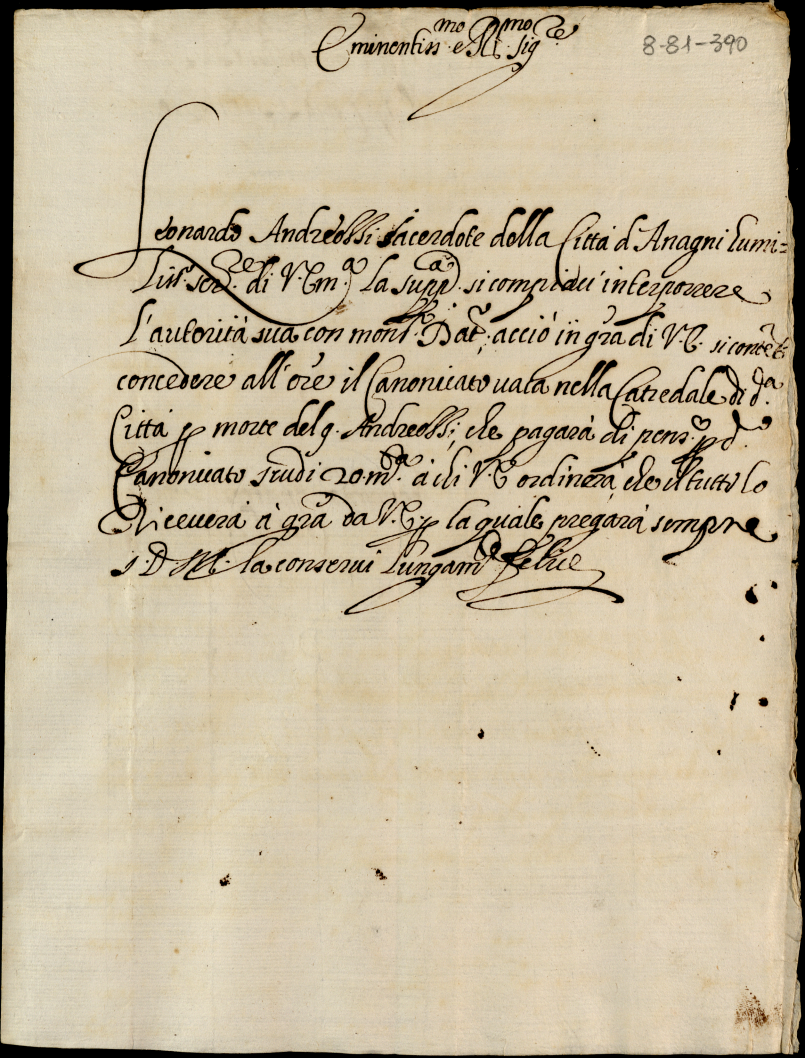 Eminentiss.mo e R.mo Sig.re
8-81-390
Leonardo Andreossi sacerdote della Città d'Anagni humi=
liss.o ser.re di V. Em.a la supp.ca si compiaci interporrere
l'autorità sua con mons.r Dat.o acciò in gr̃a di V. E. si conte
concedere all'Ore il Canonicato vacã nella Catredale di d.a
Città p morte del q. Andreossi, che pagarà di pens. p d.o
Canonicato scudi 20. m.ta à chi V. E. ordinerà, che il tutto lo
Riceverà à gr̃a da V. E. p la quale pregarà sempre
S. D. M. la conservi lungam.te felice